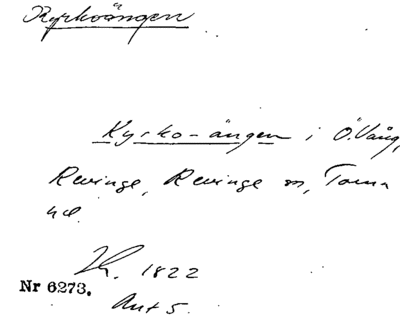 Kyrkoängen
Kyrko-ängen i Ö. Vång,
Revinge, Revinge sn, Torna
hd.
Lk. 1822
Nr 6273.
Ant 5.